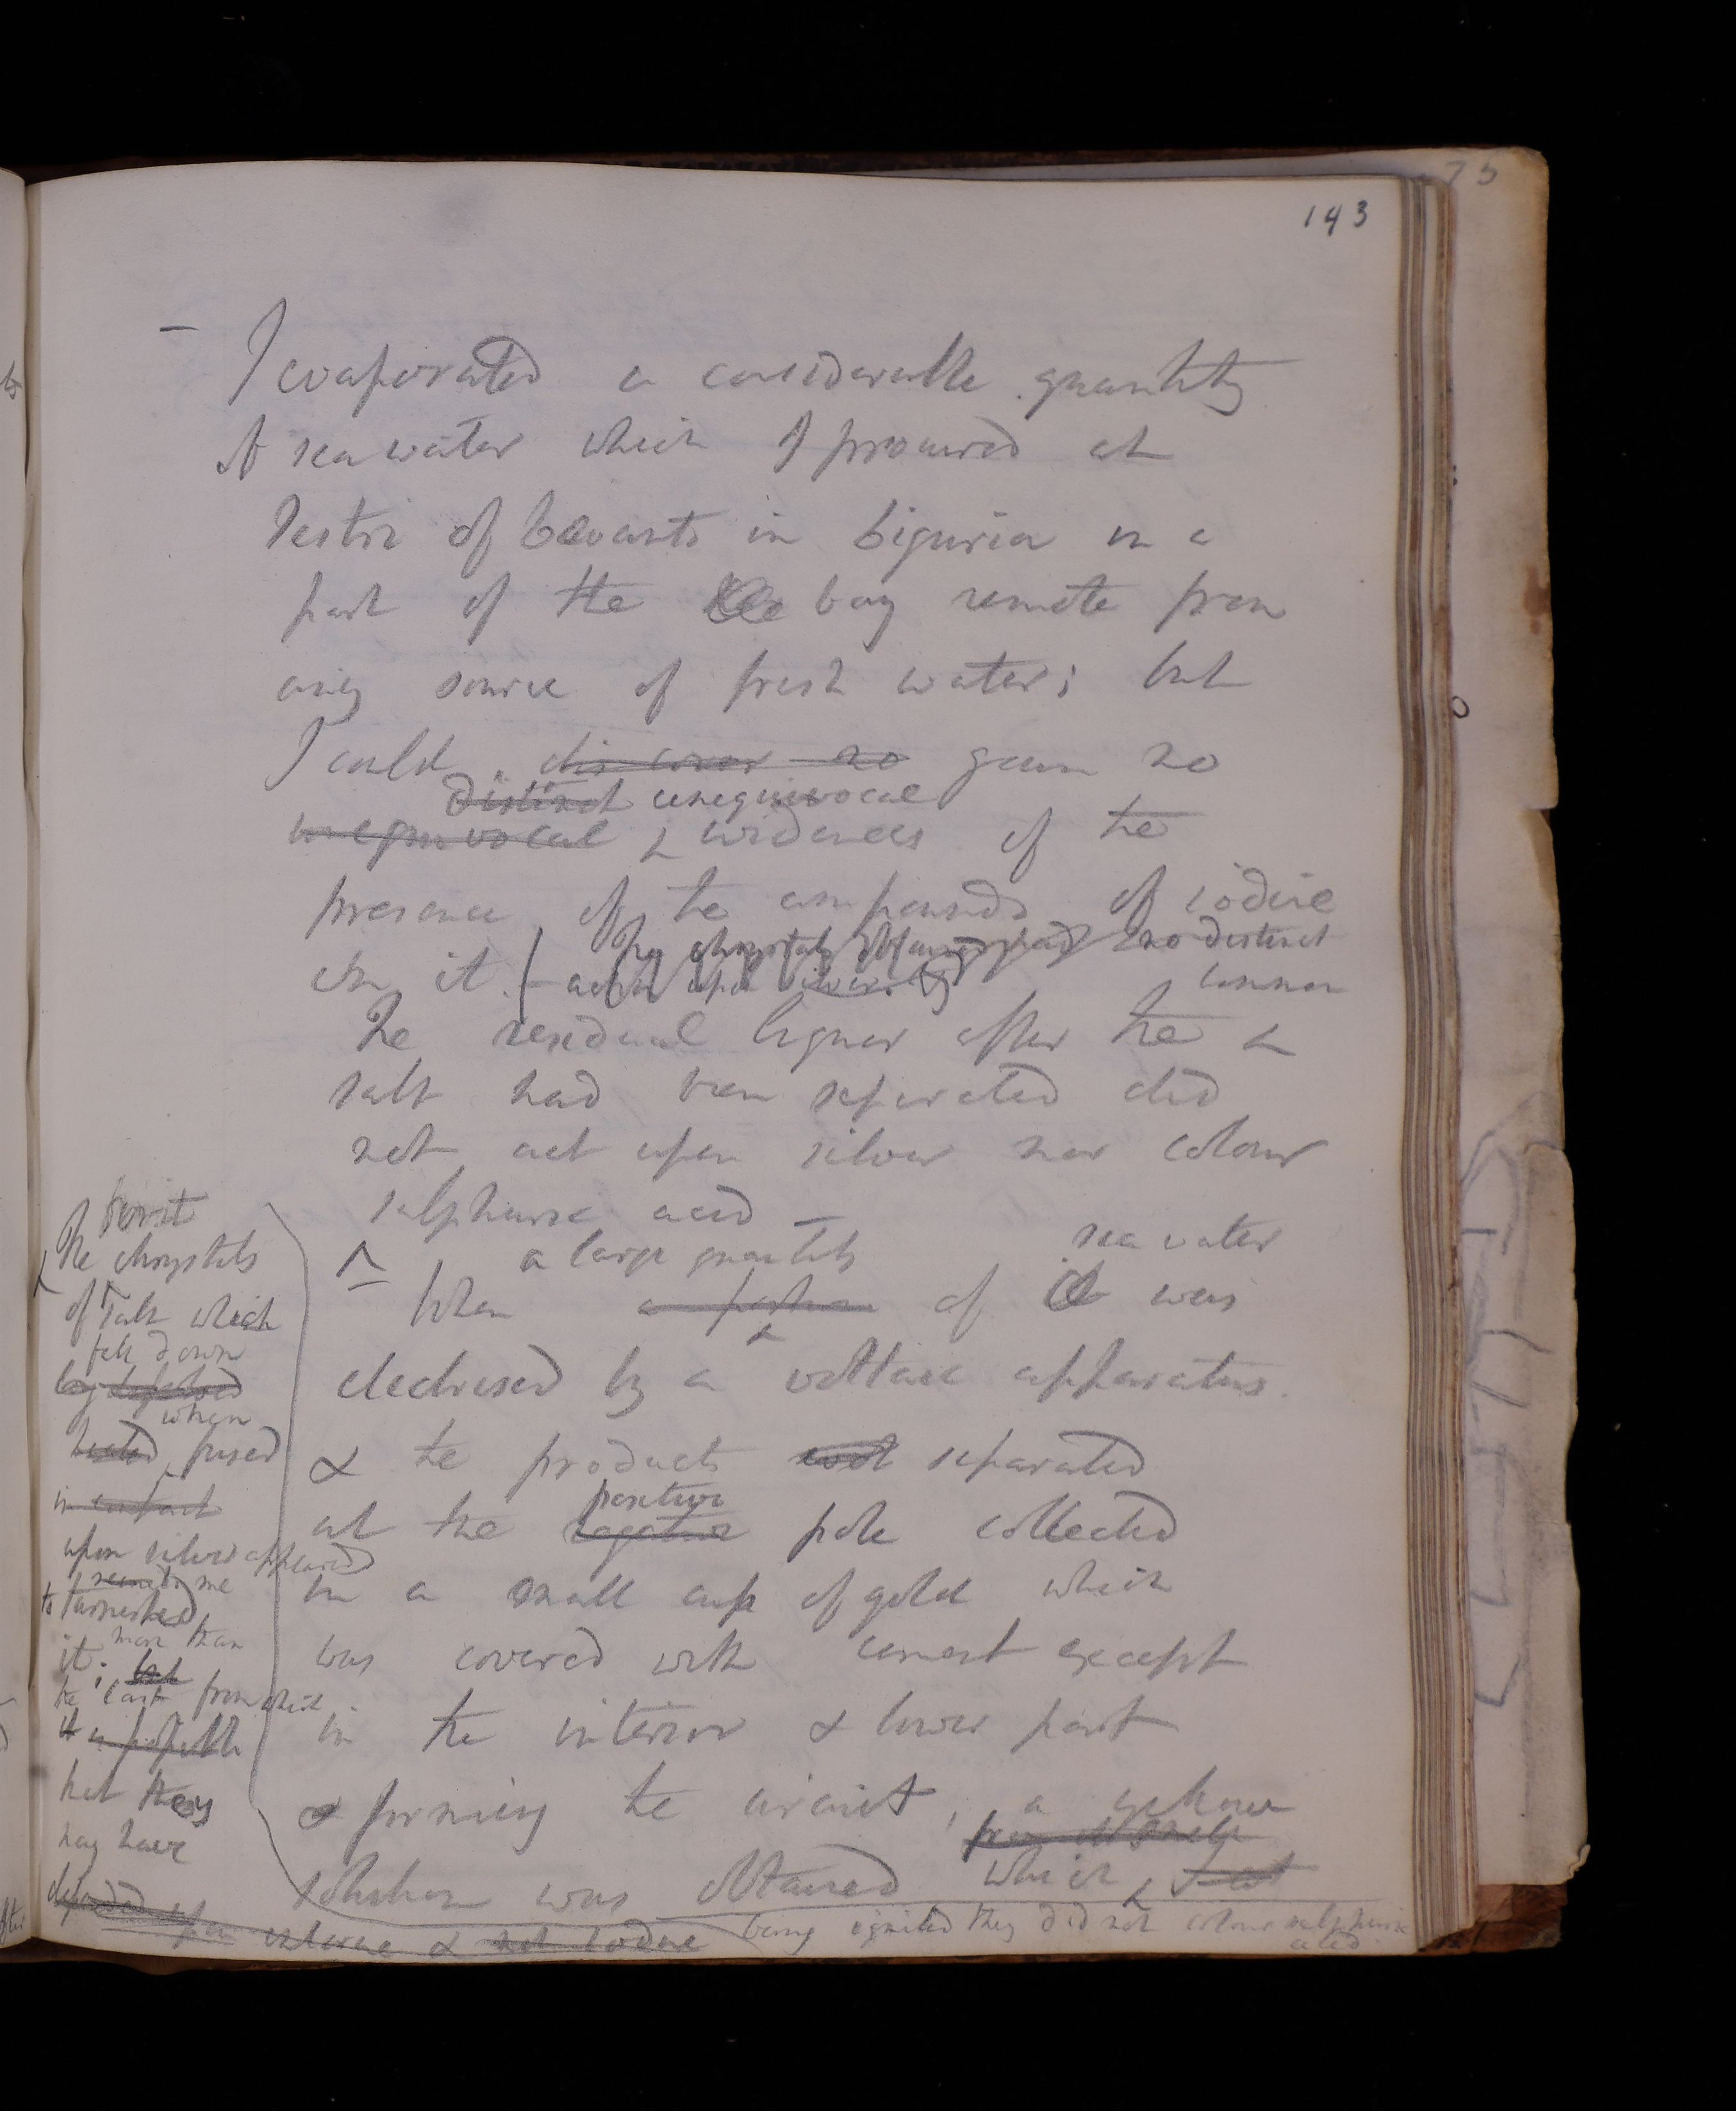 143
— I evaporated a considerable quantity
of sea water which I procured at
Sestri of Levanto in Liguria in a
part of the bay remote from
any source of fresh water; but
I could discover no gain no
distinct unequivocal
unequivocal ^ evidences of the
presence of the compounds of iodine
The chrystals obtained had no distinct
in it. action upon silver.
common
The residual liquor after the ^
salt had been separated did
not act upon silver nor colour
sulphuric acid —
a large quantity sea water
When a portion of it was
electrised by a voltaic apparatus.
& the products separated
positive
at the negative pole collected
in a small cup of gold which
was covered with cement except
in the interior & lower part
& forming the circuit, a yellow
solution was obtained which ^
The chrystals
of salt which
fell down
when
heated fused
in contact
upon silver appeared
to me
to tarnished
more than
it. but
the last from which
it
hat they
may have
depended upon chlorine & not iodine being ignited they did not colour sulphuric
acid.